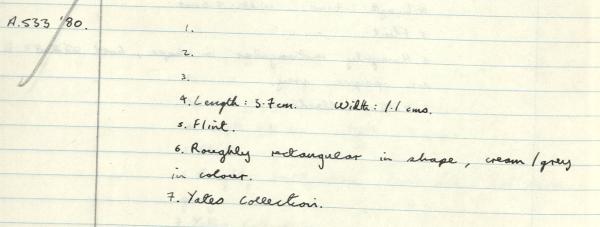 A.533 '80.
1.
2.
3.
4. Length: 3.7cm. Width: 1.1 cms.
5. Flint.
6. Roughly rectangular in shape, cream/grey
in colour.
7. Yates Collection.